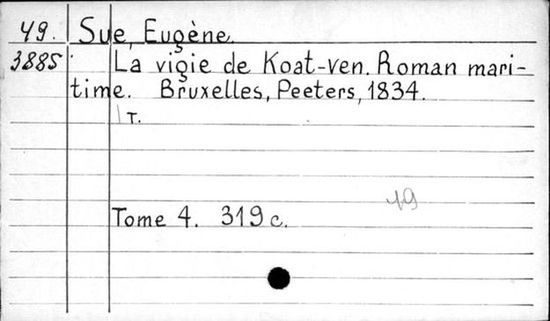 49. Sue, Eugène.
3885 La vigie de Koat-ven. Roman mari-
time. Bruxelles, Peeters, 1834.
T.
49
Tome 4. 319 c.